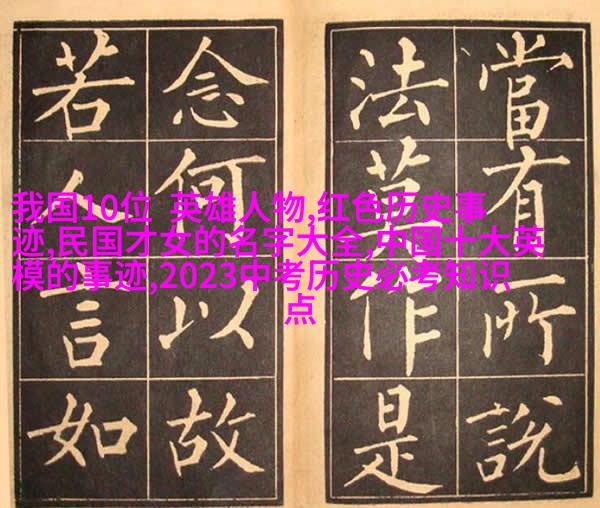 我国10位  英雄人物,红色历史事
迹,民国才女的名字大全,中国十大英
模的事迹,2023中考历史必考知识
点
當有所說
法莫作是
念何以故
若人言如